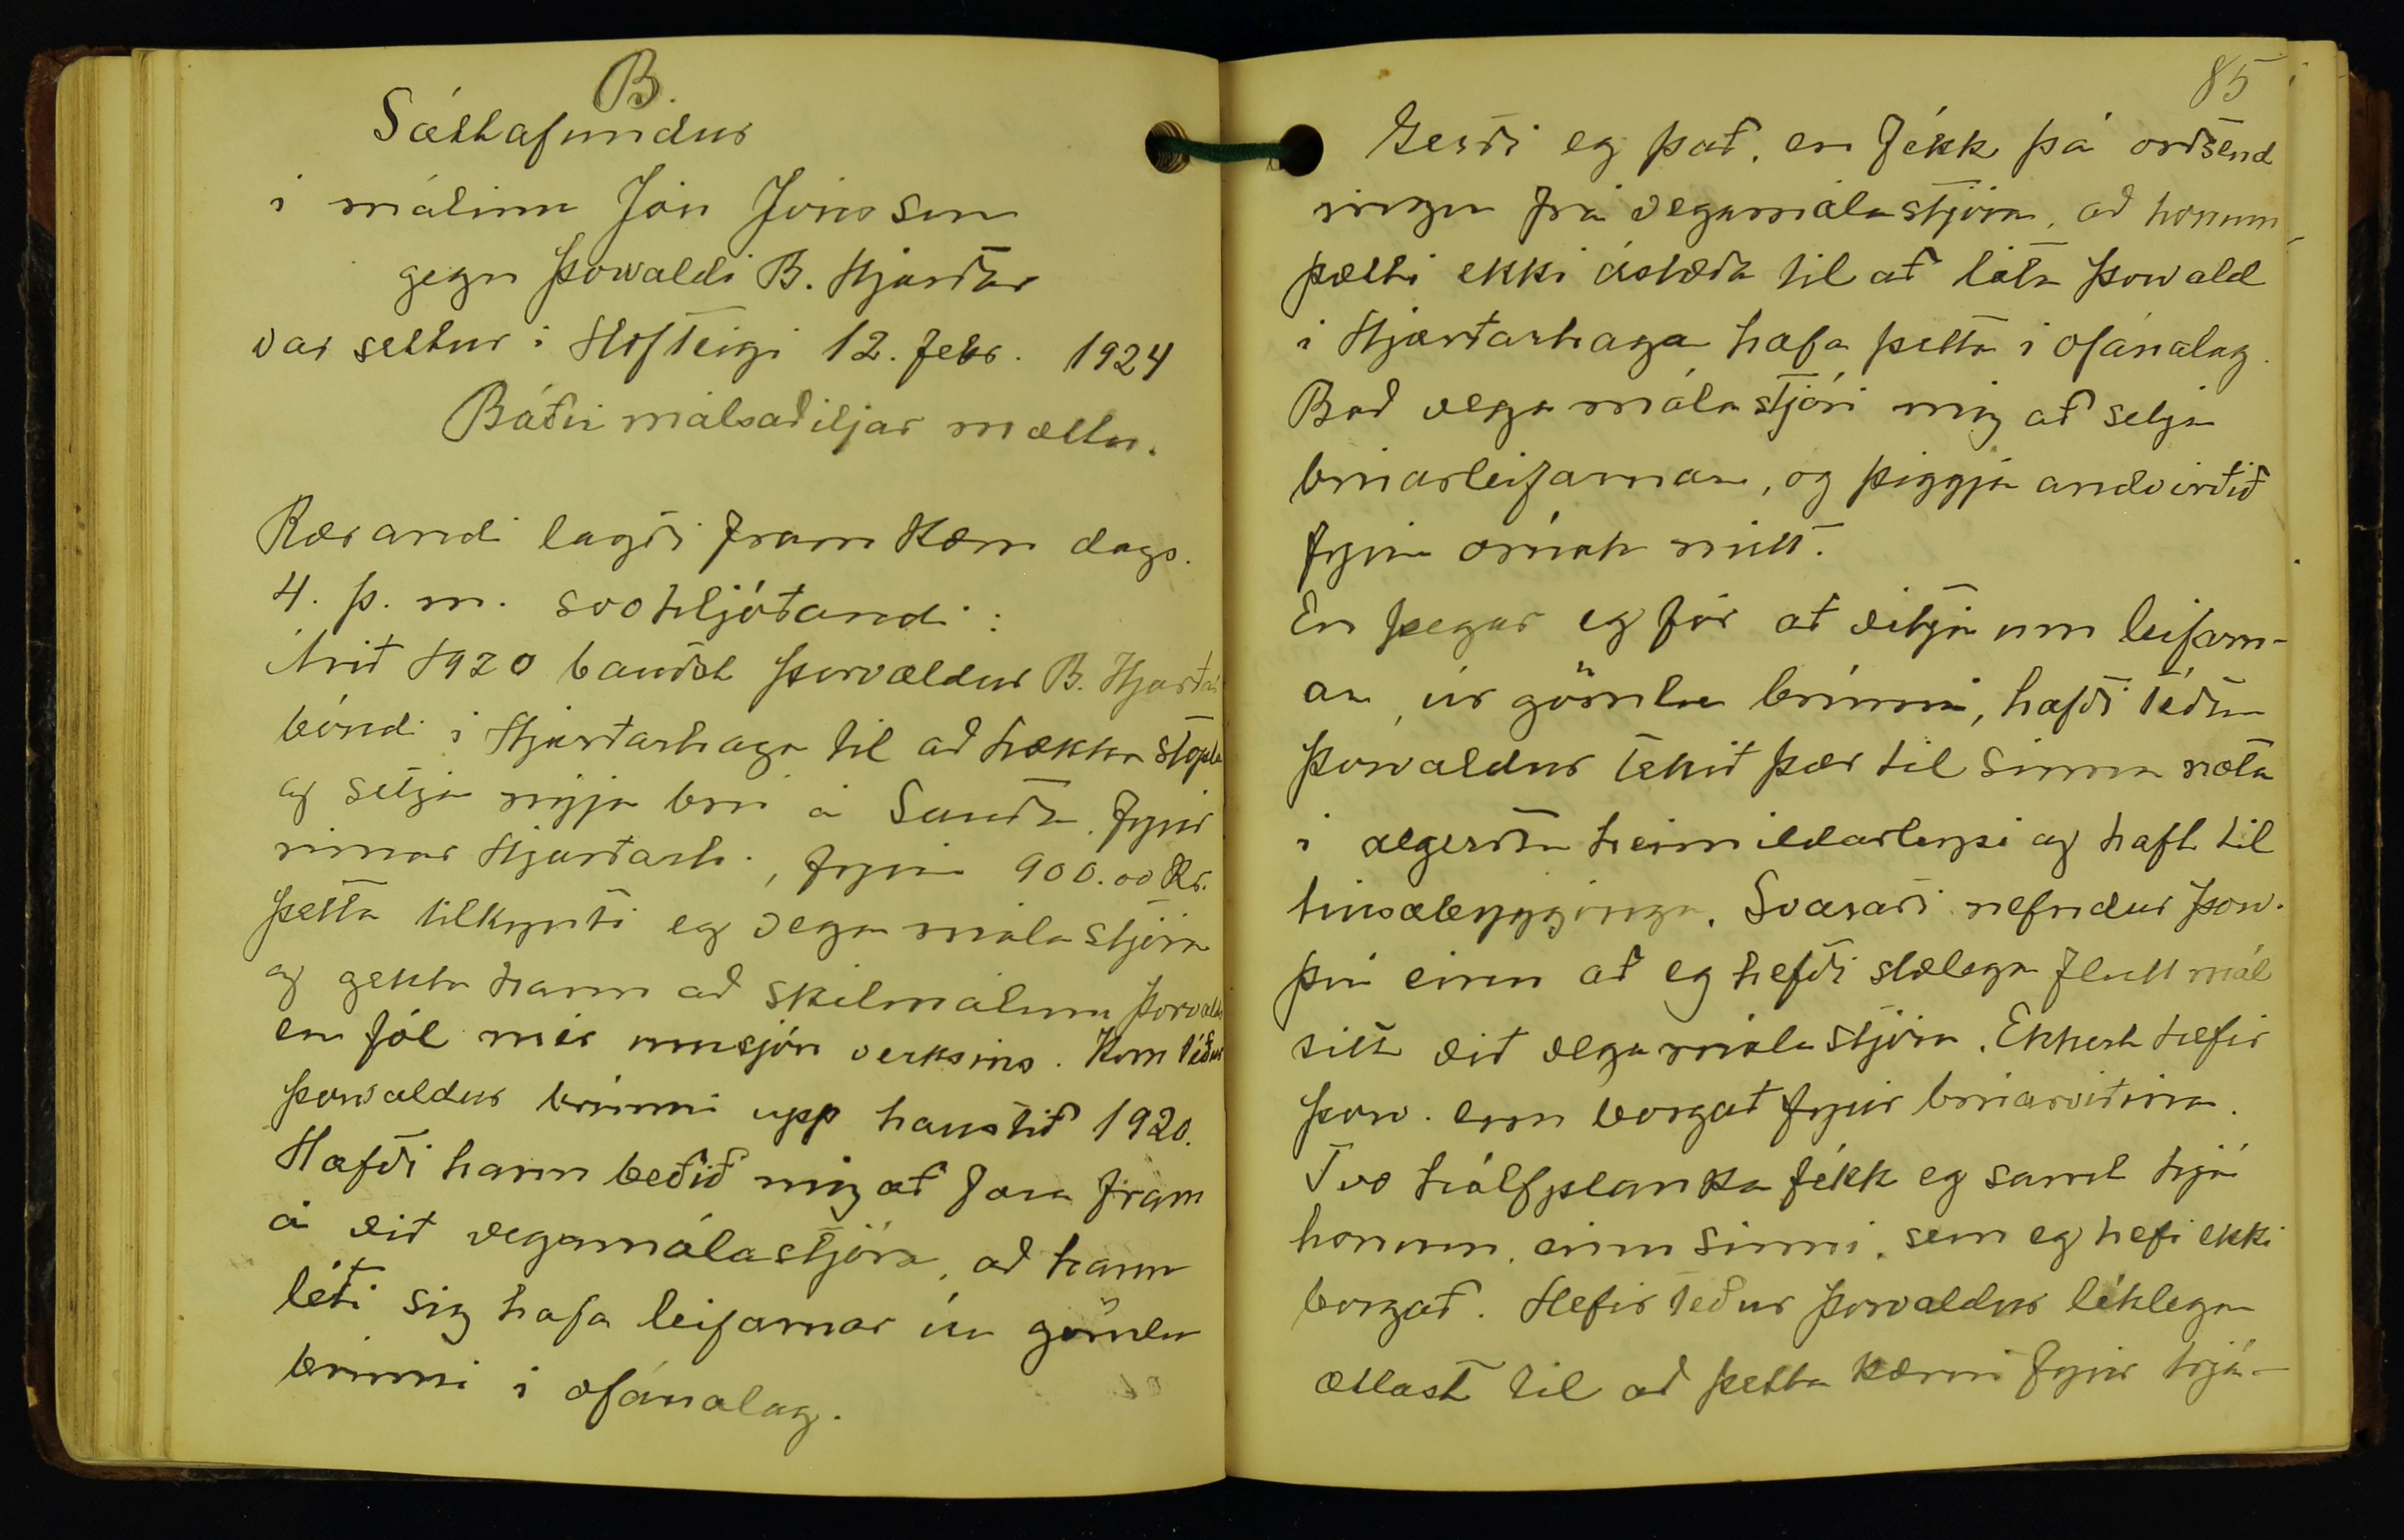 B.
Sáttafundur
í málinu Jón Jónsson
gegn Þorvaldi B. Hjarðar
var settur í Hofteigi 12. febr. 1924
Báðir málsaðiljar mættu.
Kærandi lagði fram kæru dags.
4. þ. m. svohljóðandi:
Árið 1920 bauðst Þorvaldur B. Hjarðar
bóndi í Hjarðarhaga til að hækka stöpla
og setja nýja brú á Sauðá fyrir
innan Hjarðarh., fyrir 900.00 Kr.
Þetta tilkynti eg vegamálastjóra
og gekk hann að skilmálum Þorvalds
en fól mér umsjón verksins. Kom téður
Þorvaldur brúnni upp haustið 1920.
Hafði hann beðið mig að fara fram
á við vegamálastjóra, að hann
léti sig hafa leifarnar úr gömlu
brúnni í ofanálag.
85
Gerði eg það, en fékk þá orðsend
ingu frá vegamálastjóra, að honum
þætti ekki ástæða til að láta Þorvald
í Hjarðarhaga hafa þetta í ofanálag.
Bað vegamálastjóri mig að selja
brúarleifarnar, og þiggja andvirðið
fyrir ómak mitt.
En þegar eg fór að vitja um leifarn-
ar, úr gömlu brúnni, hafði téður
Þorvaldur tekið þær til sinna nota
í algerðu heimildarleysi og haft til
húsabygginga. Svaraði nefndur Þorv.
því einu að eg hefði slælega flutt mál
sitt við vegamálastjóra. Ekkert hefir
Þorv. enn borgað fyrir brúarviðinn.
Tvo hálfplanka fékk eg samt hjá
honum, einu sinni, sem eg hefi ekki
borgað. Hefir téður Þorvaldur líklega
ætlast til að þetta kæmi fyrir trjá-